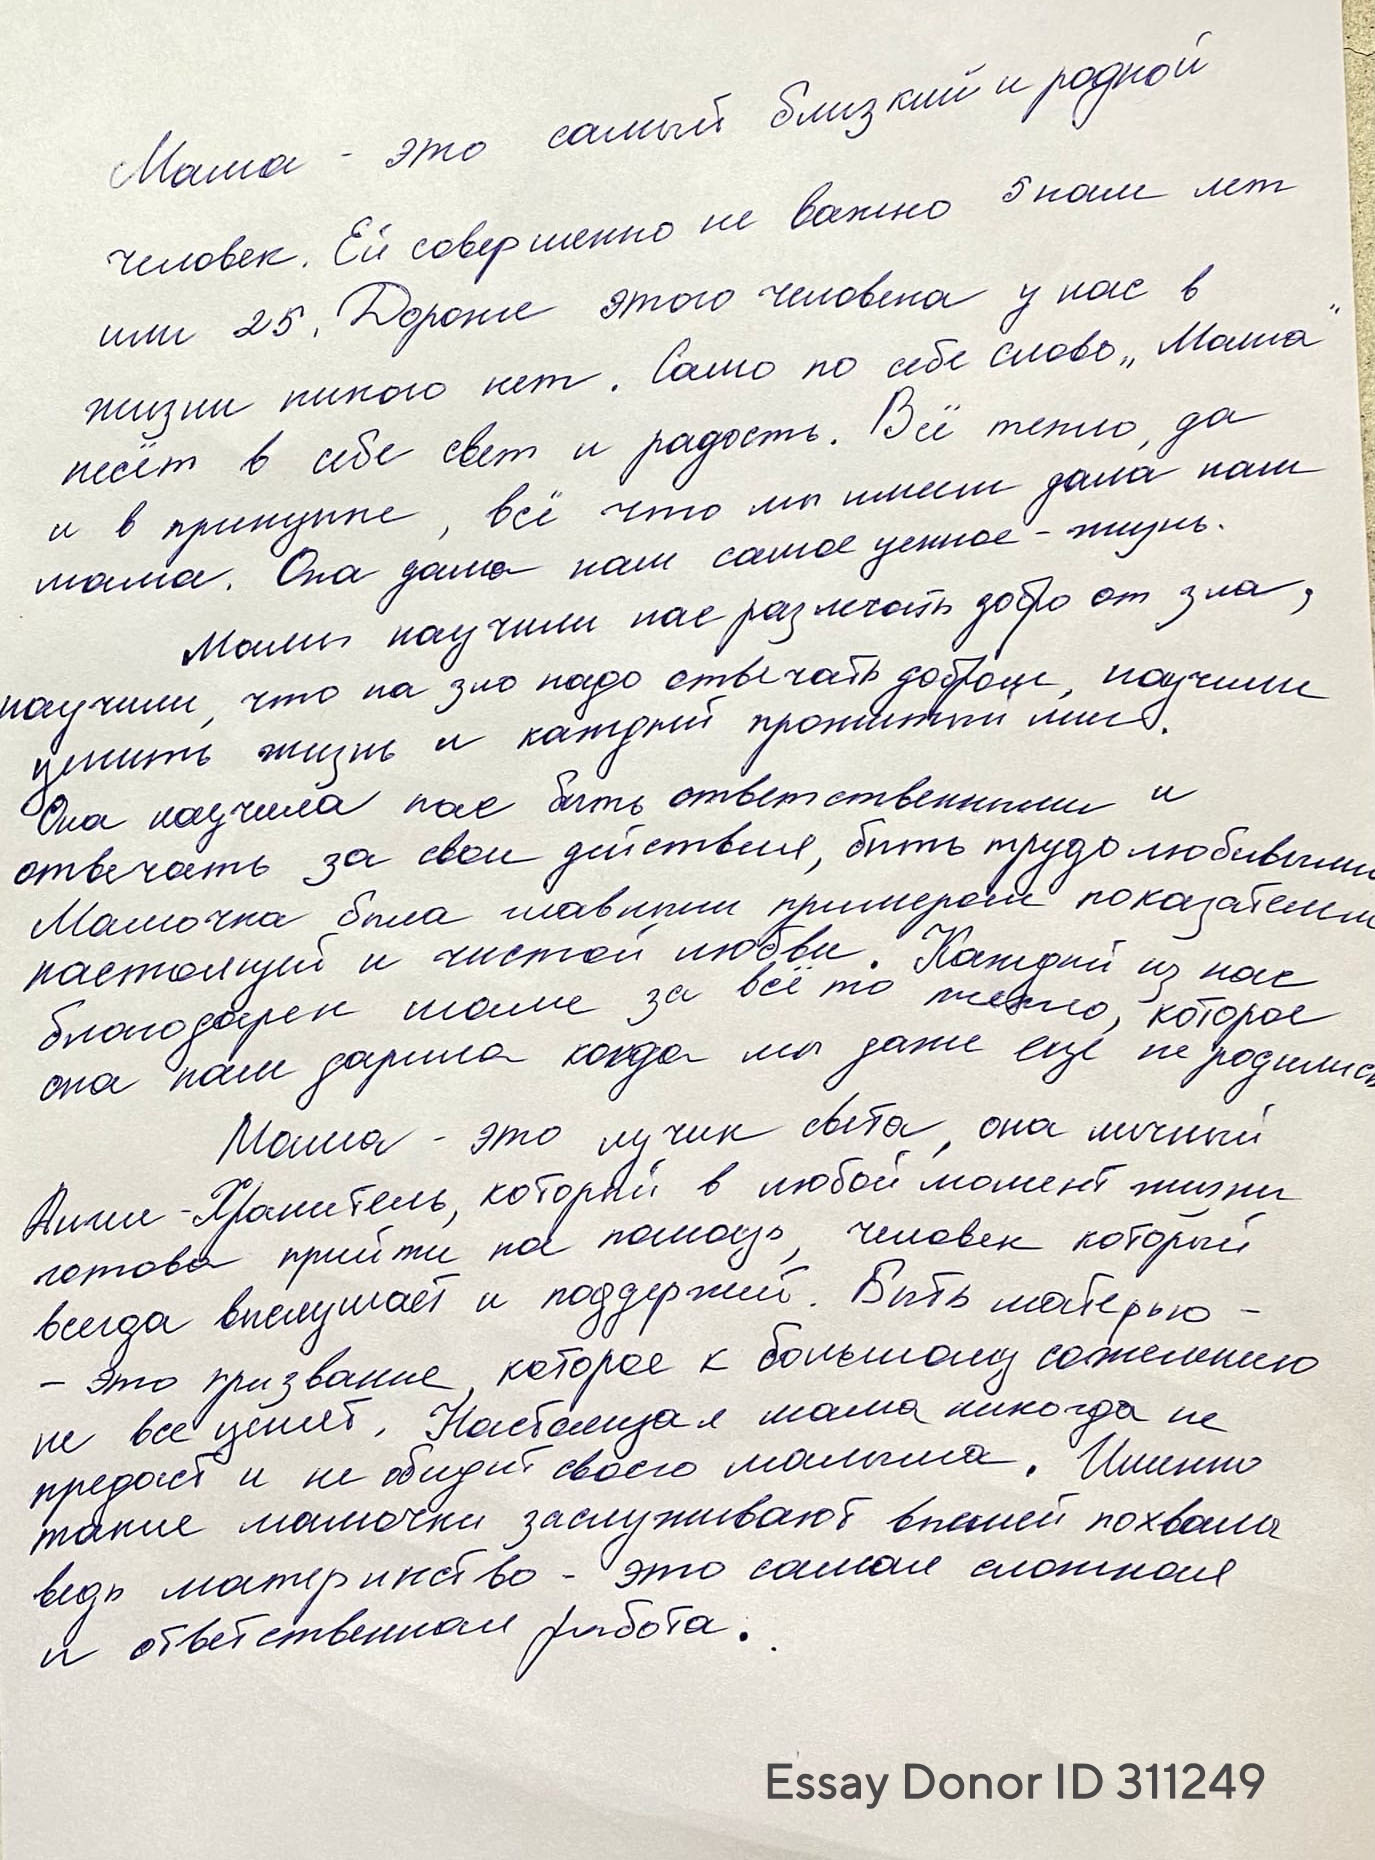 Мама - это самый близкий и родной
человек. Ей совершенно не важно 5 нам лет
или 25. Дороже этого человека у нас в
жизни никого нет. Само по себе слово „Мама"
несёт в себе свет и радость. Всё тепло, да
и в принципе, всё что мы имеем дала нам
мама. Она дама нам самое ценное - жизнь.
Мамы научили нас различать добро от зла,
научили, что на зло надо отвечать добром, научили
ценить жизнь и каждый прожитый миг.
Она научила нас быть ответственными и
отвечать за свои действия, быть трудолюбивыми
Мамочка была главным примером показателем
настоящей и чистой любви. Каждый из нас
благодарен маме за всё то тепло, которое
она нам дарила когда мы даже ещё не родились
Мама - это лучик света, она личный
Ангел-Хранитель, который в любой момент жизни
готова прийти на помощь, человек который
всегда выслушает и поддержит. Быть матерью -
- это призвание, которое к большому сожелению
не все ценят. Настоящая мама никогда не
предаст и не обидит своего малыша. Именно
такие мамочки заслуживают похвалы
ведь материнство - это самая сложная
и ответственная работа.
Essay Donor ID 311249